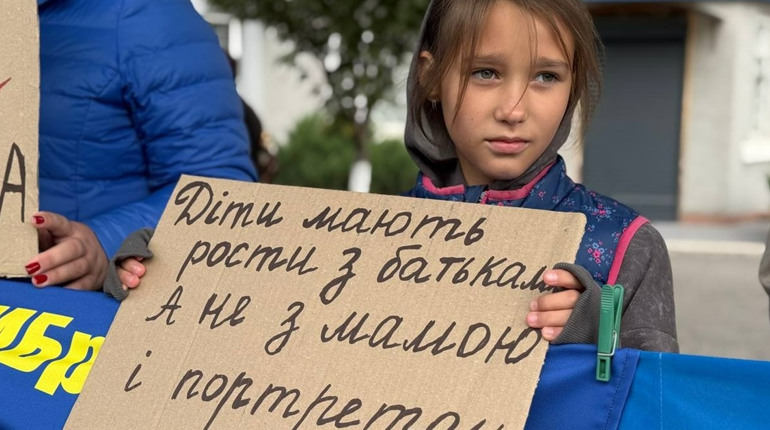 А
мбр
Діти мають
рости з батьками
А не з мамою
і портретом